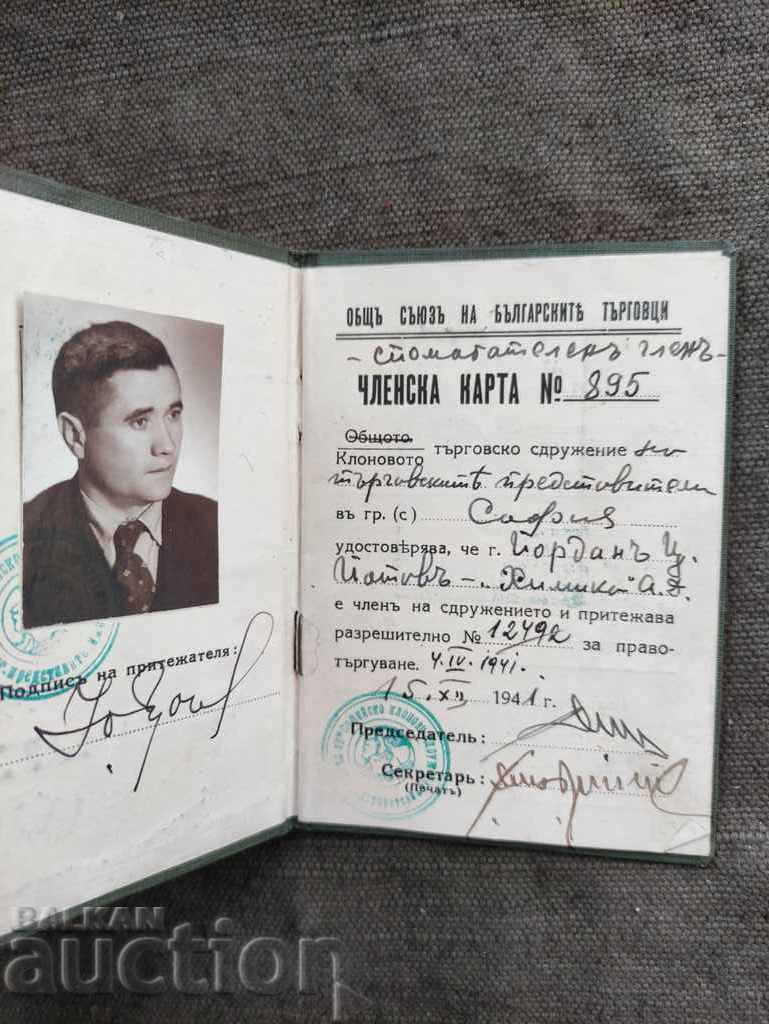 Подписъ на притежателя:
ОБЩЪ СЪЮЗЪ НА БЪЛГАРСКИТѢ ТЪРГОВЦИ
- спомагателенъ членъ -
ЧЛЕНСКА КАРТА № 895
Общото
Клоновото търговско сдружение на
търговскитѣ представители
въ гр. (с) София
удостовѣрява, че г. Йорданъ Ц.
Йотовъ - "Химика" А.Д.
е членъ на сдружението и притежава
разрешително № 12492 за право-
търгуване. 4.IV.1941.
15.XII. 1941 г.
Председатель:
Секретарь:
(Печатъ)
BALKAN
auction